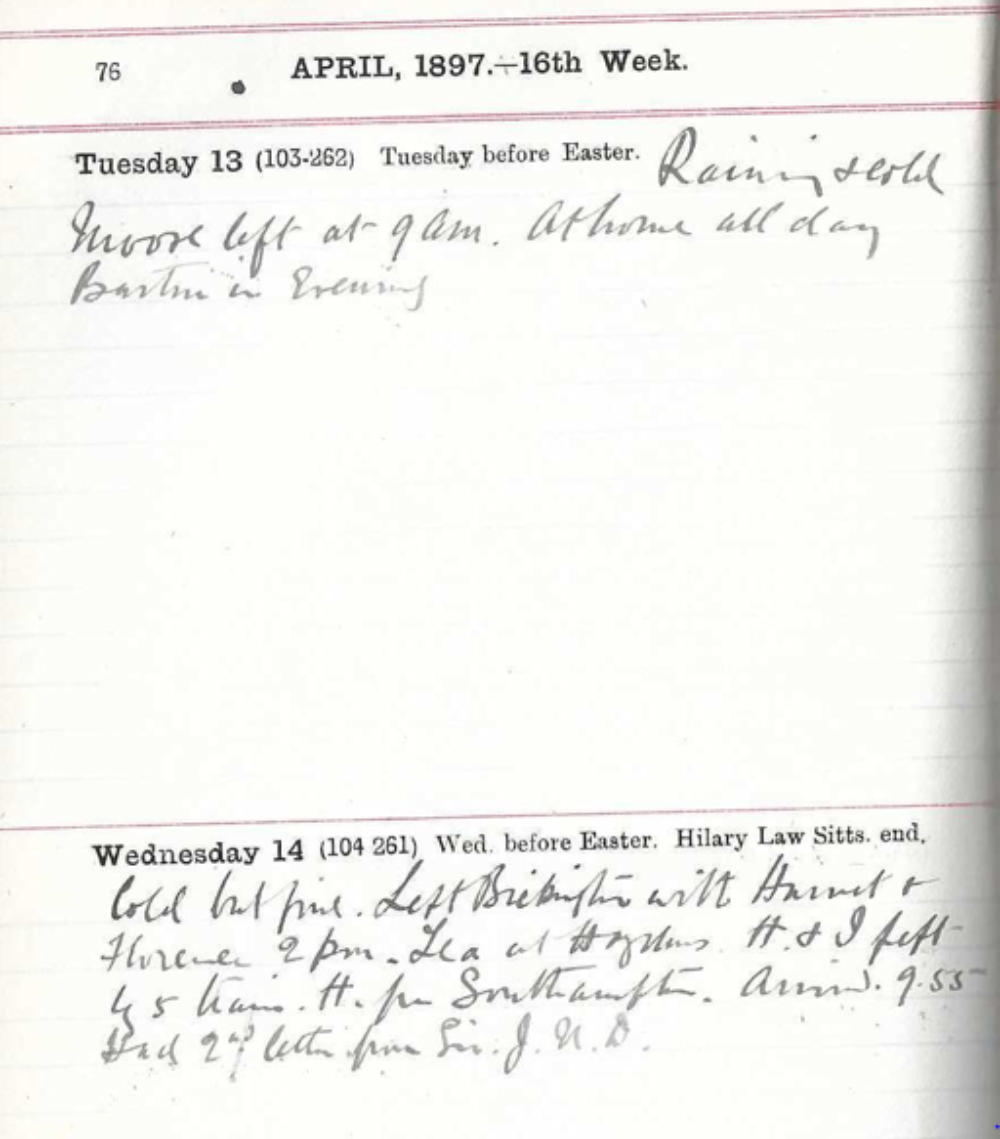 76
APRIL, 1897.—16th Week.
Tuesday 13 (103-262) Tuesday before Easter. Raining & cold
Moore left at 9 am. At home all day
in Evening
Wednesday 14 (104 261) Wed. before Easter. Hilary Law Sitts. end.
Cold but fine. Left with Harriet &
Florence 2 pm. Tea at H. & I left
by 5 train. H. for Southampton. Arrivd. 9.55
Had 2nd letter from Sir. J. N. D.